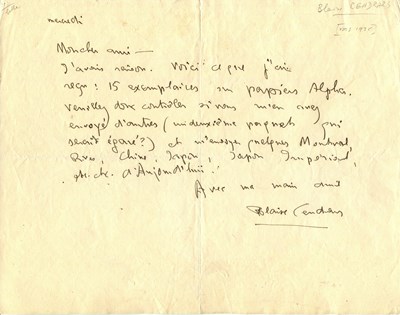 Blaise Cendrars
mercredi
Mon cher ami —
J'avais raison. Voici ce que j'ai
reçu : 15 exemplaires sur papier Alpha.
Veuillez donc contrôler si vous m'en avez
envoyé d'autres (un deuxième paquet qui
serait égaré?) et m'envoyer quelques Montval,
Rives, Chine, Japon, Japon Impérial,
etc. etc. d'Aujourd'hui.
Avec ma main amie
Blaise Cendrars